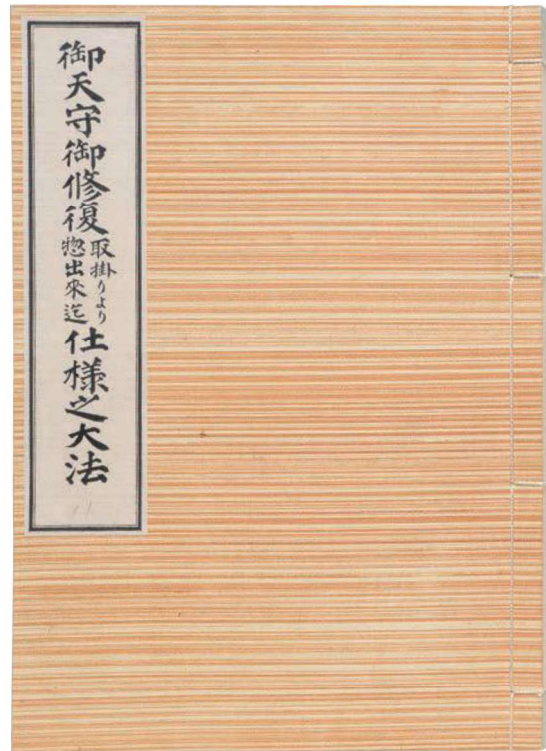 御天守御修復取掛りより惣出來迄仕様之大法